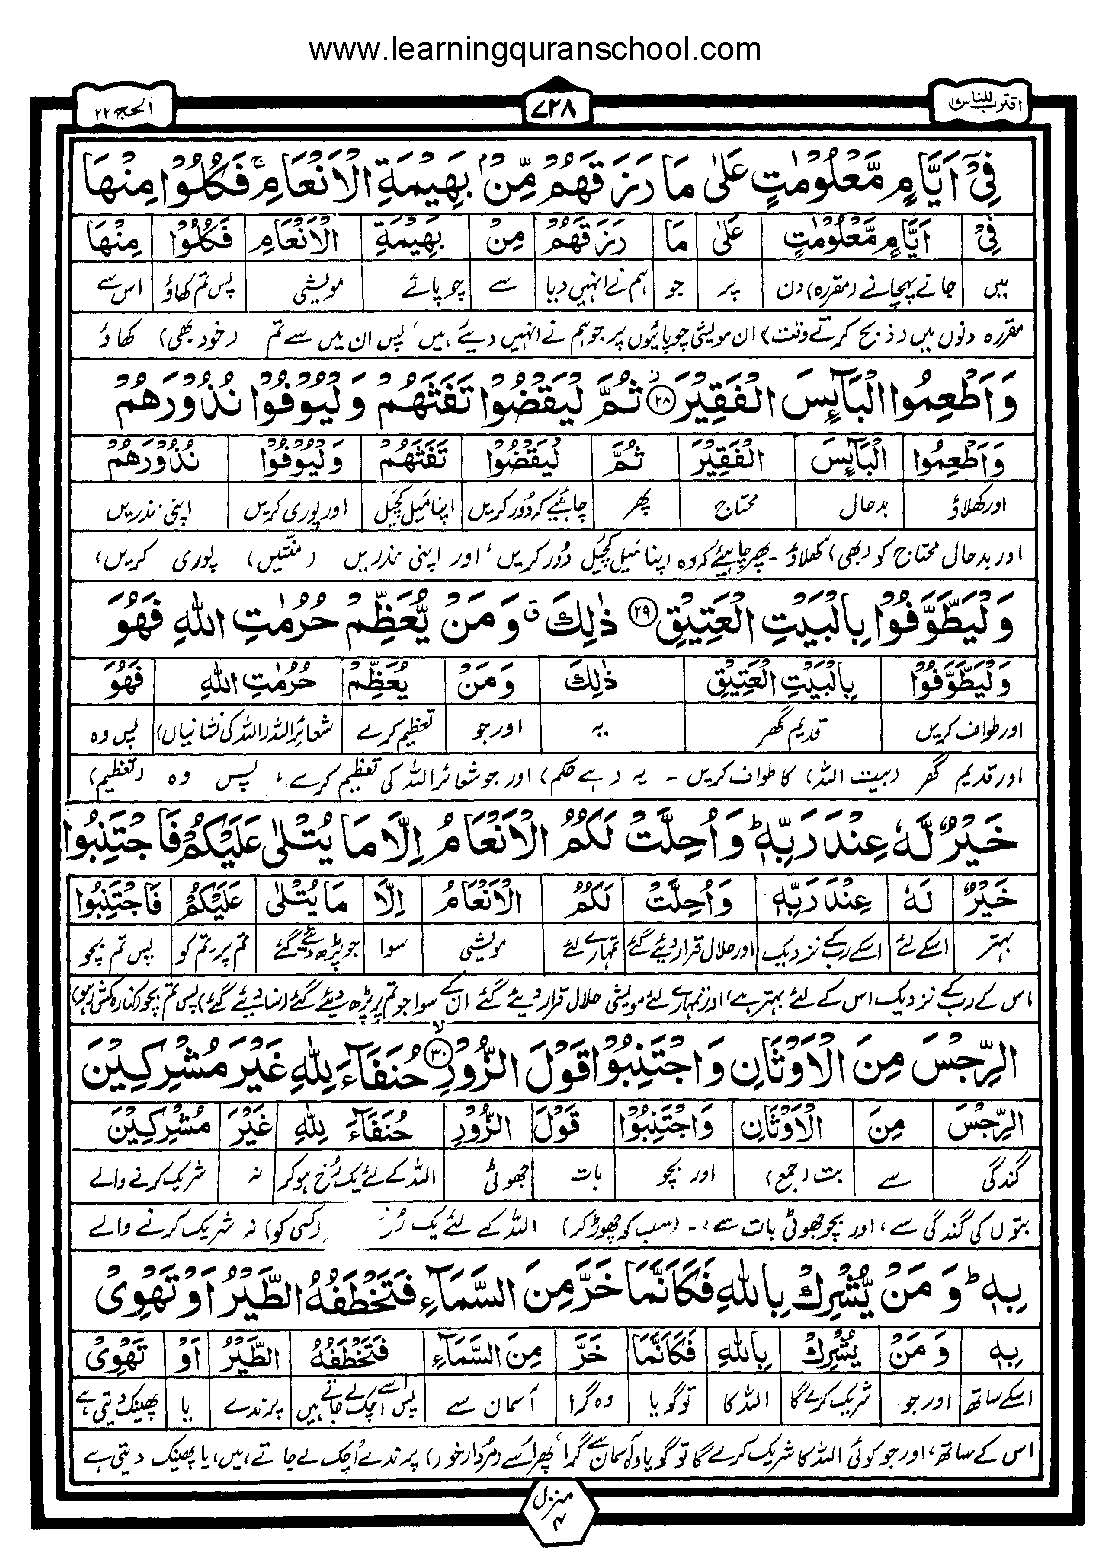 www.learningquranschool.com
اقترب للناس ۱۷
۷۲۸
الحج ۲۲
فِیْۤ اَیَّامٍ مَّعْلُوْمٰتٍ عَلٰی مَا رَزَقَهُمْ مِّنْۢ بَهِیْمَةِ الْاَنْعَامِ ۚ فَكُلُوْا مِنْهَا
فِیْۤ اَیَّامٍ مَّعْلُوْمٰتٍ عَلٰی مَا رَزَقَهُمْ مِنْ بَهِیْمَةِ الْاَنْعَامِ فَكُلُوْا مِنْهَا
میں جانے پہچانے (مقررہ) دن پر جو ہم نے انہیں دیا سے چوپائے مویشی پس تم کھاؤ اس سے
مقررہ دنوں میں (ذبح کرتے وقت) ان مویشی چوپائیوں پر جو ہم نے انہیں دیے ہیں، پس ان میں سے تم (خود بھی) کھاؤ
وَاَطْعِمُوا الْبَآئِسَ الْفَقِیْرَ ۲۸ ثُمَّ لْیَقْضُوْا تَفَثَهُمْ وَلْیُوْفُوْا نُذُوْرَهُمْ
وَاَطْعِمُوا الْبَآئِسَ الْفَقِیْرَ ثُمَّ لْیَقْضُوْا تَفَثَهُمْ وَلْیُوْفُوْا نُذُوْرَهُمْ
اور کھلاؤ بدحال محتاج پھر چاہیے کہ دُور کریں اپنا میل کچیل اور پوری کریں اپنی نذریں
اور بدحال محتاج کو (بھی) کھلاؤ ۔ پھر چاہیئے کہ وہ اپنا میل کچیل دُور کریں، اور اپنی نذریں (منتیں) پوری کریں،
وَلْیَطَّوَّفُوْا بِالْبَیْتِ الْعَتِیْقِ ۲۹ ذٰلِكَ ق وَمَنْ یُّعَظِّمْ حُرُمٰتِ اللهِ فَهُوَ
وَلْیَطَّوَّفُوْا بِالْبَیْتِ الْعَتِیْقِ ذٰلِكَ وَمَنْ یُعَظِّمْ حُرُمٰتِ اللهِ فَهُوَ
اور طواف کریں قدیم گھر یہ اور جو تعظیم کرے شعائر اللہ (اللہ کی نشانیاں) پس وہ
اور قدیم گھر (بیت اللہ) کا طواف کریں ۔ یہ (ہے حکم) اور جو شعائر اللہ کی تعظیم کرے، پس وہ (تعظیم)
خَیْرٌ لَّهٗ عِنْدَ رَبِّهٖ ؕ وَاُحِلَّتْ لَكُمُ الْاَنْعَامُ اِلَّا مَا یُتْلٰی عَلَیْكُمْ فَاجْتَنِبُوا
خَیْرٌ لَهٗ عِنْدَ رَبِّهٖ وَاُحِلَّتْ لَكُمُ الْاَنْعَامُ اِلَّا مَا یُتْلٰی عَلَیْكُمْ فَاجْتَنِبُوا
بہتر اسکے لئے اسکے رب کے نزدیک اور حلال قرار دیئے گئے تمہارے لئے مویشی سوا جو پڑھ دیئے گئے تم پر۔تم کو پس تم بچو
اس کے رب کے نزدیک اس کے لئے بہتر ہے، اور تمہارے لئے مویشی حلال قرار دیئے گئے اُن کے سوا جو تم پر پڑھ دیئے گئے (سنا دیئے گئے) پس تم بچو (کنارہ کش رہو)
الرِّجْسَ مِنَ الْاَوْثَانِ وَاجْتَنِبُوْا قَوْلَ الزُّوْرِ ۳۰ حُنَفَآءَ لِلّٰهِ غَیْرَ مُشْرِكِیْنَ
الرِّجْسَ مِنَ الْاَوْثَانِ وَاجْتَنِبُوْا قَوْلَ الزُّوْرِ حُنَفَآءَ لِلّٰهِ غَیْرَ مُشْرِكِیْنَ
گندگی سے بت (جمع) اور بچو بات جھوٹی اللہ کے لئے یک رُخ ہو کر نہ شریک کرنے والے
بتوں کی گندگی سے، اور بچو جھوٹی بات سے، ۔ (سب کو چھوڑ کر) اللہ کے لئے یک رُخ (کسی کو) نہ شریک کرنے والے
بِهٖ ؕ وَمَنْ یُّشْرِكْ بِاللهِ فَكَاَنَّمَا خَرَّ مِنَ السَّمَآءِ فَتَخْطَفُهُ الطَّیْرُ اَوْ تَهْوِیْ
بِهٖ وَمَنْ یُشْرِكْ بِاللهِ فَكَاَنَّمَا خَرَّ مِنَ السَّمَآءِ فَتَخْطَفُهُ الطَّیْرُ اَوْ تَهْوِیْ
اسکے ساتھ اور جو شریک کرے گا اللہ کا تو گویا وہ گرا آسمان سے پس اُسے اُچک لے جاتے ہیں پرندے یا پھینک دیتی ہے
اس کے ساتھ، اور جو کوئی اللہ کا شریک کرے گا تو گویا وہ آسمان سے گرا، پھر اُسے (مردار خور) پرندے اُچک لے جاتے ہیں، یا پھینک دیتی ہے
منزل ۴